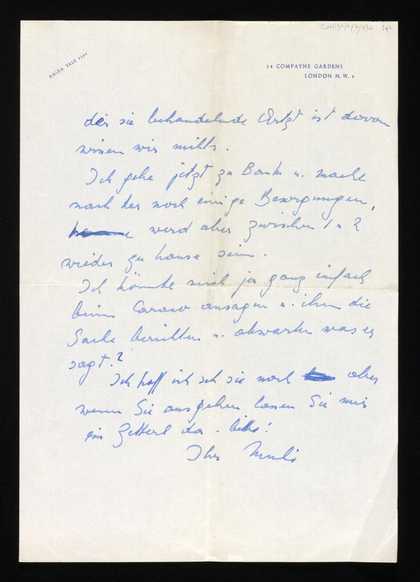 MAIDA VALE 7301
14 COMPAYNE GARDENS
LONDON N.W.6
der sie behandelnde Artzt ist davon
wissen wir nichts.
Ich gehe jetzt zu Bank u. mache
nach her noch einige Besorgungen,
werd aber zwischen 1 u 2
wieder zu hause sein.
Ich könnte mich ja ganz einfach
beim ansagen u. ihm die
Sache berichten u. abwarten was er
sagt?
Ich hoff ich seh sie noch aber
wenn Sie ausgehen lassen Sie mir
ein Zetterl da - bitte!
Ihr